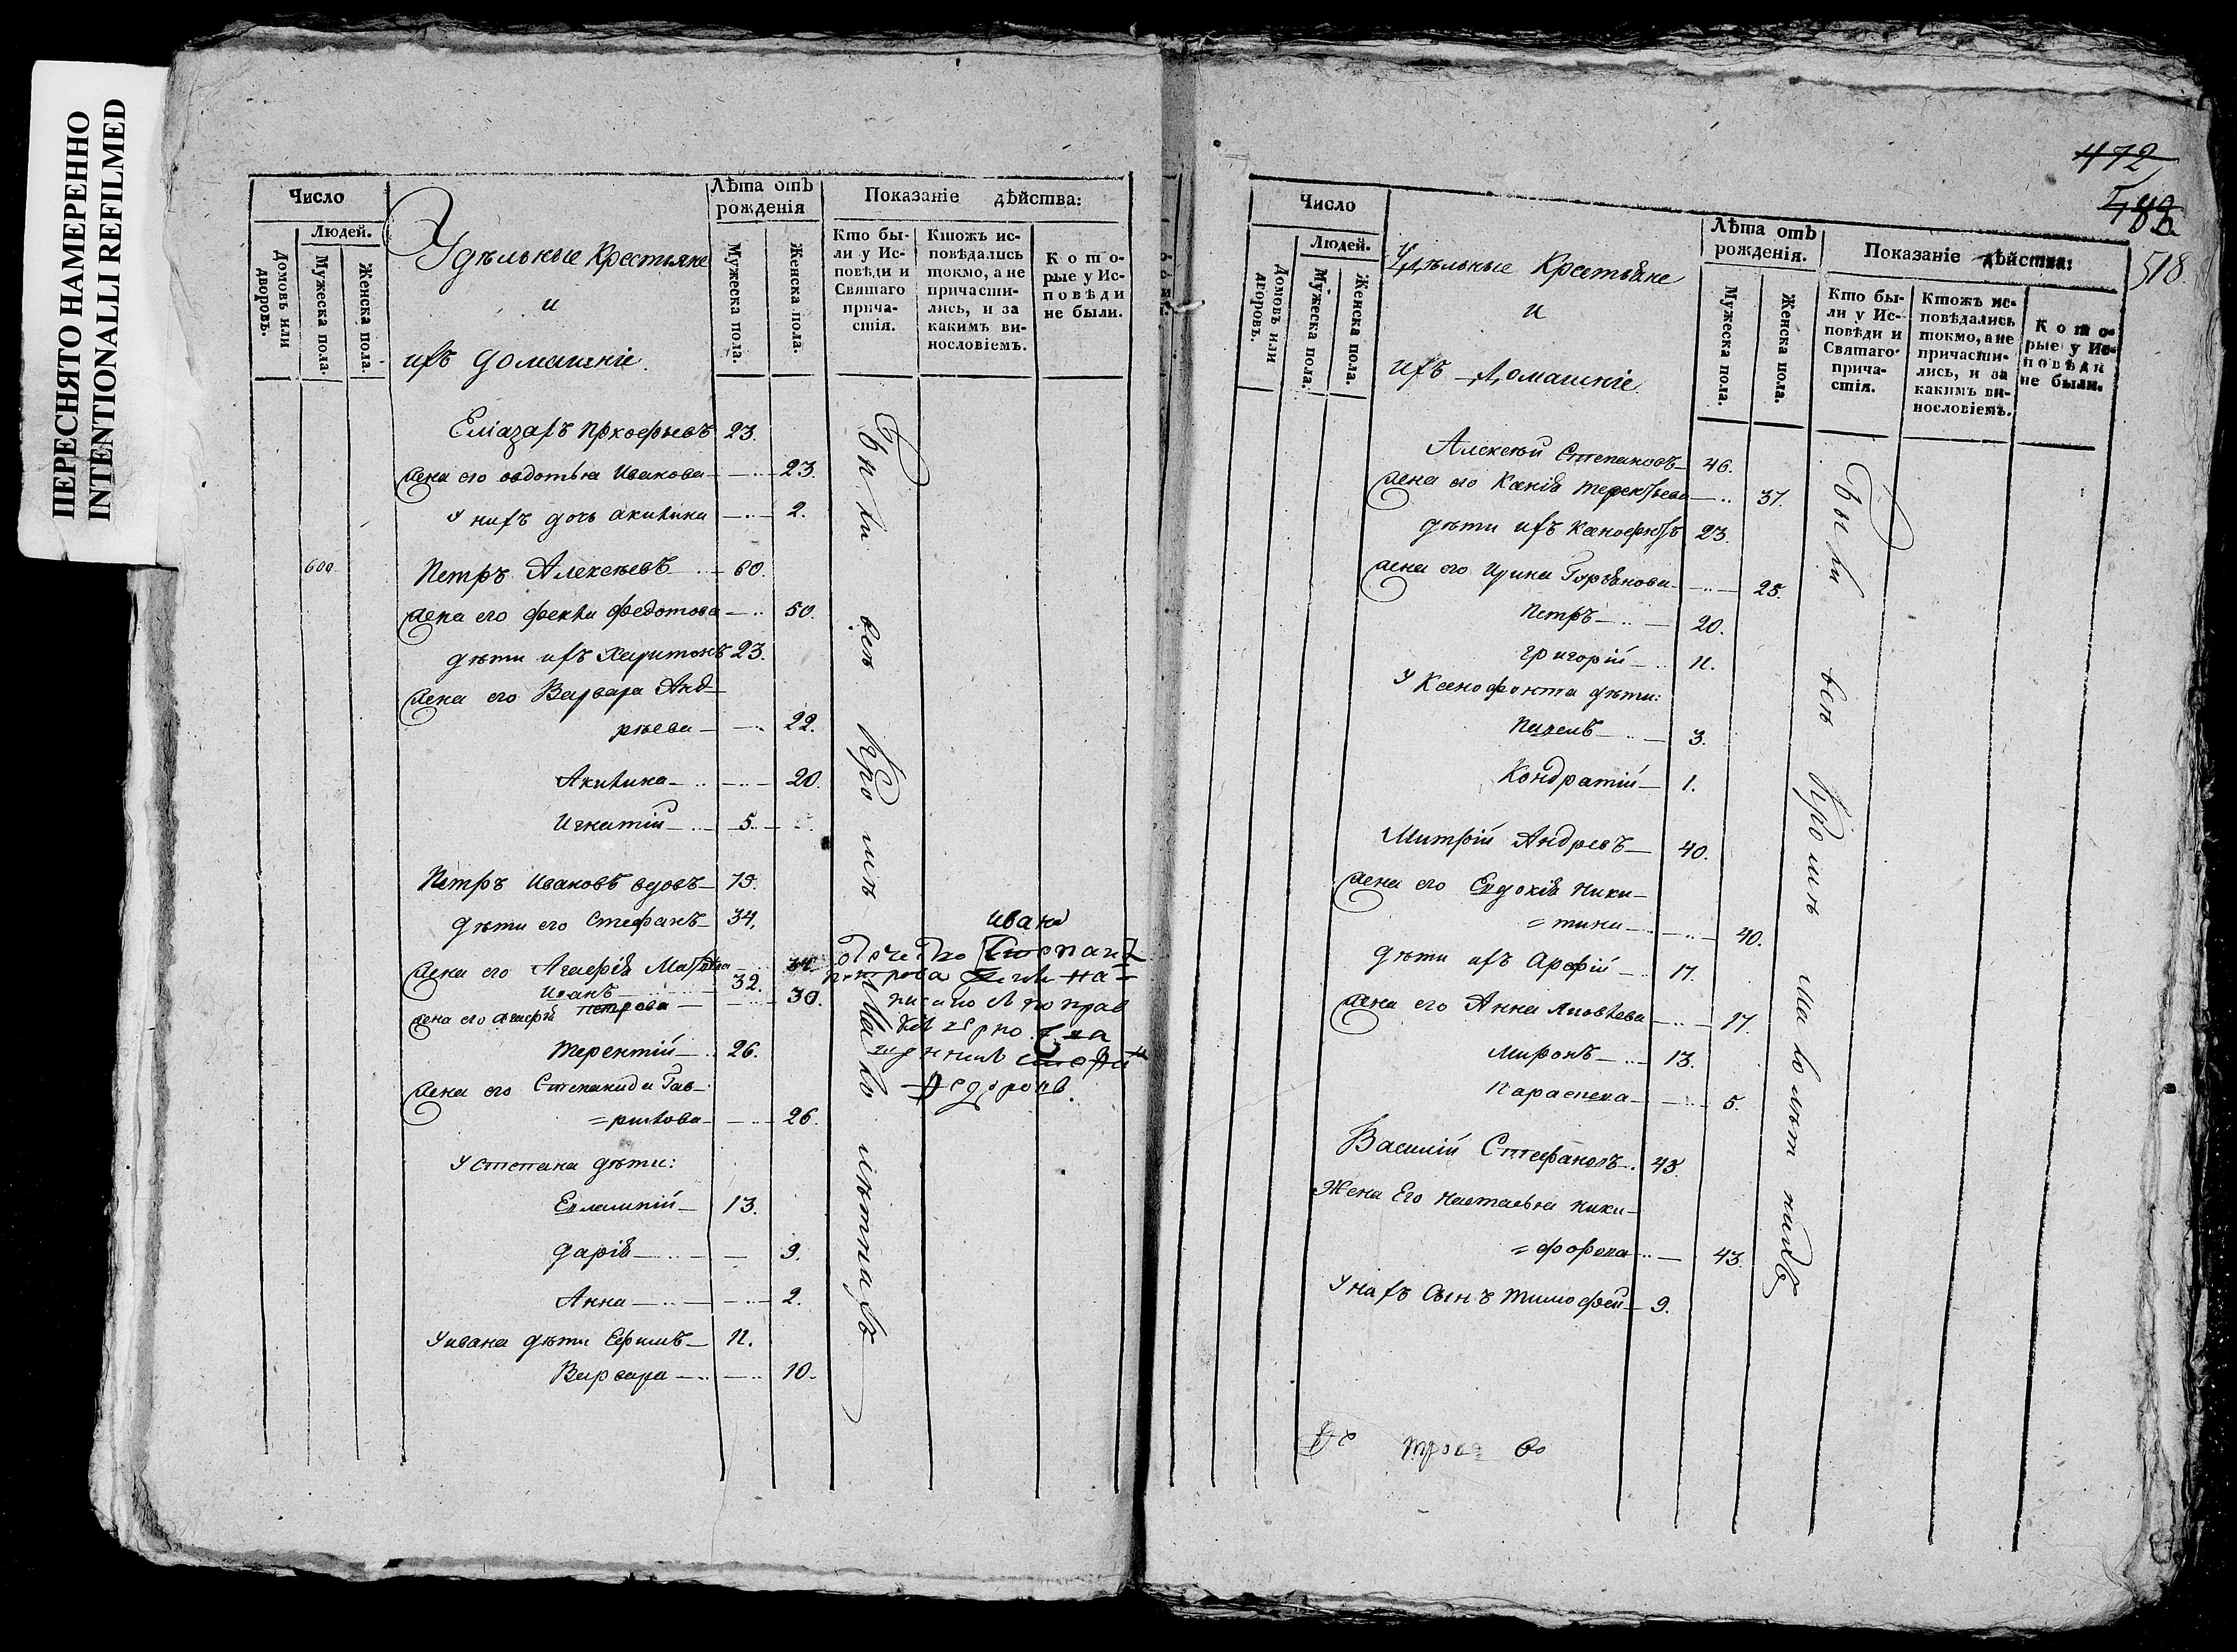 ПЕРЕСНЯТО НАМЕРЕННО
INTENTIONALLI REFILMED
Число
Людей.
Домовъ или дворовъ.
Мужеска пола.
Женска пола.
Удѣльные Крестьяне
и
ихъ домашніе.
Лѣта отъ рожденія
Мужеска пола.
Женска пола.
Показаніе дѣйства:
Кто были у Исповѣди и Святаго причастія.
Ктожъ исповѣдались токмо, а не причастились, и за какимъ винословіемъ.
Которые у Исповѣди не были.
Еліазаръ Пркофьевъ 23.
жена его овдотья Иванова 23.
У нихъ дочь акилина 2.
600 Петръ Алексѣевъ 60.
жена его фекла федотова 50.
дѣти ихъ Харитонъ 23.
жена его Варвара Анд-
рѣева 22.
Акилина 20.
Игнатій 5.
Петръ Ивановъ вдовъ 75.
дѣти его Стефанъ 34.
жена его Агафія 34.
Иванъ 32.
жена его Петрова 30.
Терентій 26.
жена его Степанида Гав-
=рилова 26.
У степана дѣти:
Евлампій 13.
дарія 9.
Анна 2.
У ивана дѣти Ефимъ 11.
Варвара 10.
Были всѣ Кромѣ Малолѣтныхъ
Ивана
Петрова
472
483.
518.
Число
Людей.
Домовъ или дворовъ.
Мужеска пола.
Женска пола.
Удѣльные Крстьяне
и
ихъ Домашніе.
Лѣта отъ рожденія.
Мужеска пола.
Женска пола.
Показаніе дѣйства:
Кто были у Исповѣди и Святаго причастія.
Ктожъ исповѣдались токмо, а не причастились, и за какимъ винословіемъ.
Которые у Исповѣди не были.
Алексѣй Степановъ 46.
жена его Ксенія терентьева 37.
дѣти ихъ Ксенофонтъ 23.
жена его Ирина 25.
Петръ 20.
григорій 11.
У Ксенофонта дѣти:
Павелъ 3.
Кондратій 1.
Митрій Андревъ 40.
жена его Евдокія Ники-
=тина 40.
дѣти ихъ 17.
жена его Анна 17.
Миронъ 13.
Параскева 5.
Василій Стефановъ 43.
Жена Его настасья ники-
=форова 43.
У нахъ Сынъ тимофей 9.
Были всѣ Кромѣ Малолѣтныхъ